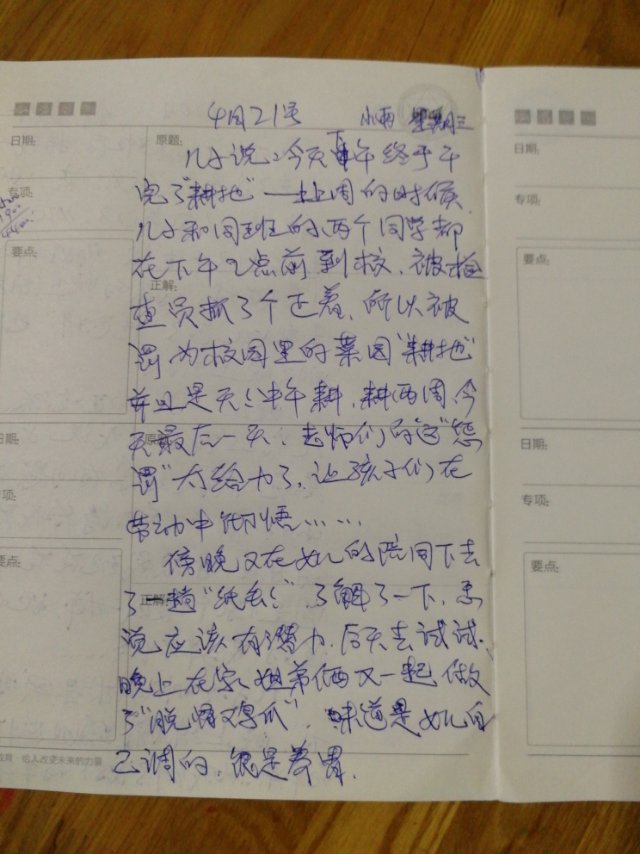 4月21号 小雨 星期三
日期: 原题:
儿子说:今天中午终于干
完了"耕地"——上周的时候,
专项:
儿子和同班的两个同学都
要点:
在下午2点前到校,被检
正解:
查员抓了个正着,所以被
罚为校园里的菜园"耕地"
并且是天天中午耕,耕两周,今
天最后一天,老师们的这"惩
日期: 原
罚"太给力了,让孩子们在
专项:
劳动中彻悟……
要点:
傍晚又在女儿的陪同下去
正解
了一趟"纸毛毛",了解了一下,
说应该有潜力,后天去试试.
晚上在家,姐弟俩又一起做
了"脱骨鸡爪",味道是女儿自
教育 给人改变未来的力量
己调的,很是美胃.
日期:
专项:
要点:
日期:
专项:
要点: